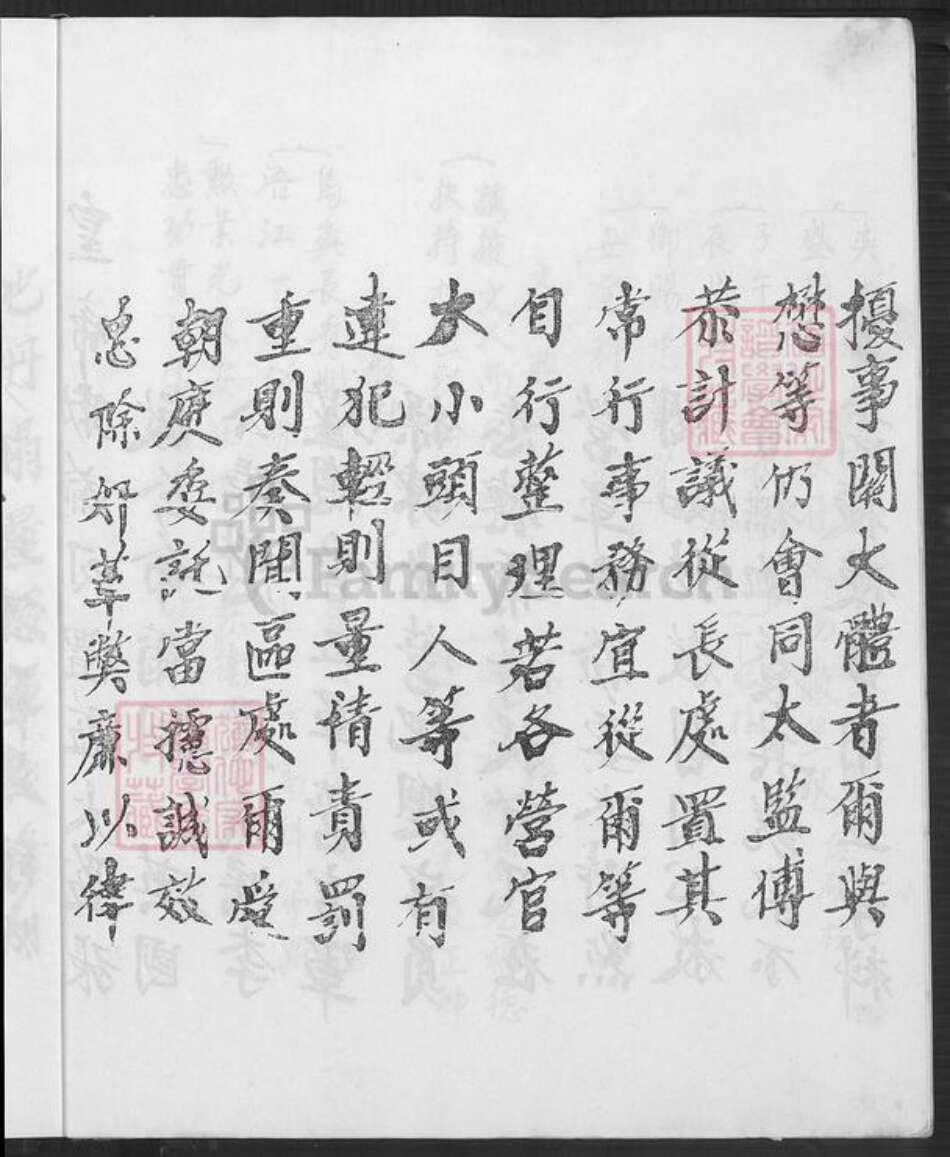 擾事關大體者爾與
懋等仍會同太監傅
恭計議從長處置其
常行事務宜從爾等
自行整理若各營官
大小頭目人等或有
違犯輕則量情責罰
重則奏聞區處爾受
朝廷委託當攄誠效
忠除奸革獘廉以律
FamilySearch